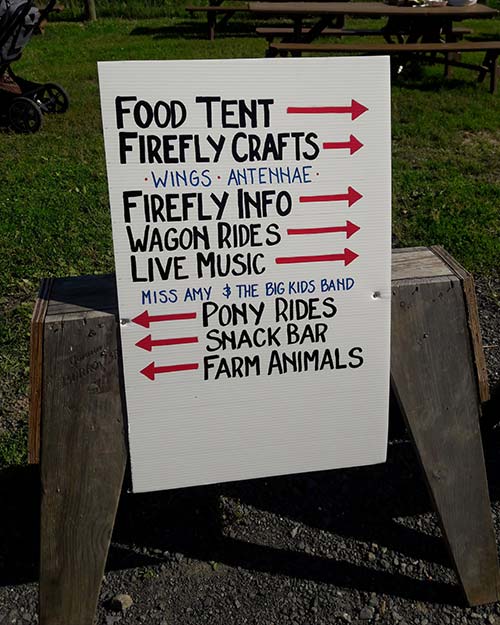 FOOD TENT
FIREFLY CRAFTS
· WINGS · ANTENNAE ·
FIREFLY INFO
WAGON RIDES
LIVE MUSIC
MISS AMY & THE BIG KIDS BAND
PONY RIDES
SNACK BAR
FARM ANIMALS